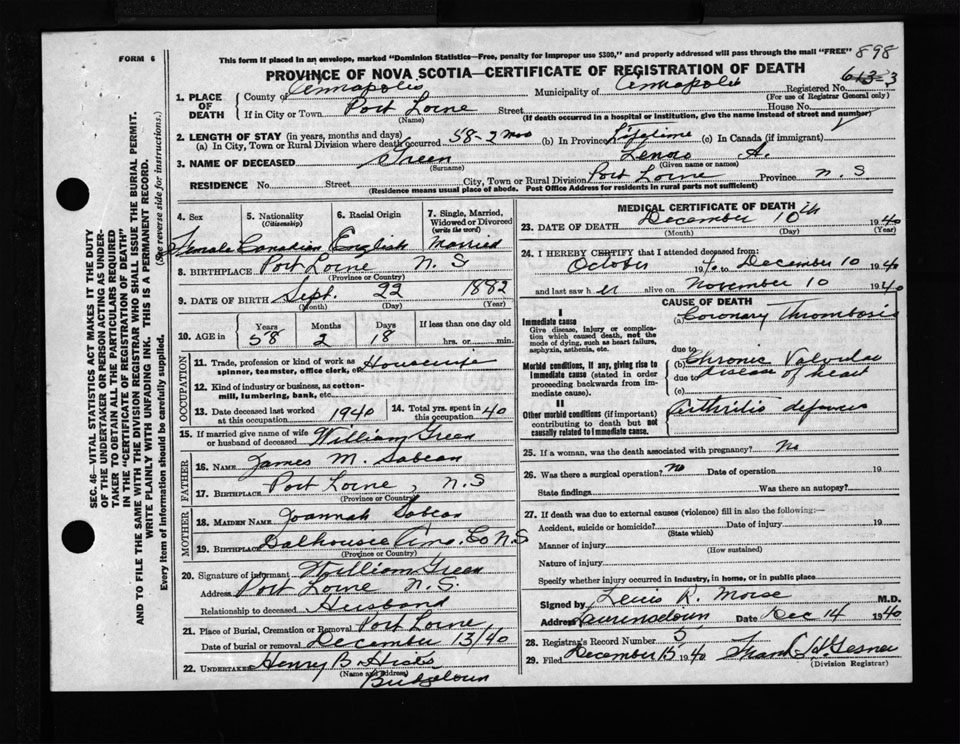 FORM 6
This form if placed in an envelope, marked "Dominion Statistics—Free, penalty for improper use $300," and properly addressed will pass through the mail "FREE"
898
PROVINCE OF NOVA SCOTIA—CERTIFICATE OF REGISTRATION OF DEATH
1. PLACE OF DEATH
County of Annapolis Municipality of Annapolis Registered No.
(For use of Registrar General only)
If in City or Town Port Lorne Street House No.
(Name) (If death occurred in a hospital or institution, give the name instead of street and number)
2. LENGTH OF STAY (in years, months and days)
(a) In City, Town or Rural Division where death occurred 58-2 mos (b) In Province Lifetime (c) In Canada (if immigrant)
3. NAME OF DECEASED Green A.
(Surname) (Given name or names)
RESIDENCE No. Street City, Town or Rural Division Port Lorne Province N. S
(Residence means usual place of abode. Post Office Address for residents in rural parts not sufficient)
SEC. 46—VITAL STATISTICS ACT MAKES IT THE DUTY
OF THE UNDERTAKER OR PERSON ACTING AS UNDER-
TAKER TO OBTAIN ALL THE PARTICULARS REQUIRED
IN THE "CERTIFICATE OF REGISTRATION OF DEATH"
AND TO FILE THE SAME WITH THE DIVISION REGISTRAR WHO SHALL ISSUE THE BURIAL PERMIT.
WRITE PLAINLY WITH UNFADING INK. THIS IS A PERMANENT RECORD.
Every item of information should be carefully supplied. (See reverse side for instructions.)
4. Sex
Female
5. Nationality
(Citizenship)
Canadian
6. Racial Origin
English
7. Single, Married,
Widowed or Divorced
(write the word)
Married
8. BIRTHPLACE Port Lorne N. S
(Province or Country)
9. DATE OF BIRTH Sept. 22 1882
(Month) (Day) (Year)
10. AGE in
Years Months Days If less than one day
58 2 18 hrs. or min.
OCCUPATION
11. Trade, profession or kind of work as Housewife
spinner, teamster, office clerk, etc.
12. Kind of industry or business, as cotton-
mill, lumbering, bank, etc.
13. Date deceased last worked
at this occupation 1940
14. Total yrs. spent in
this occupation 40
15. If married give name of wife
or husband of deceased William Green
FATHER
16. NAME James M. Sabean
17. BIRTHPLACE Port Lorne, N. S
(Province or Country)
MOTHER
18. MAIDEN NAME Joannah Sabean
19. BIRTHPLACE Dalhousie Ann. Co N S
(Province or Country)
20. Signature of informant William Green
Address Port Lorne N. S.
Relationship to deceased Husband
21. Place of Burial, Cremation or Removal Port Lorne
Date of burial or removal December 13/40
22. UNDERTAKER Henry B. Hicks
(Name and address)
Bridgetown
MEDICAL CERTIFICATE OF DEATH
23. DATE OF DEATH December 10th 1940
(Month) (Day) (Year)
24. I HEREBY CERTIFY that I attended deceased from:
October 1940 to December 10 1940
and last saw her alive on November 10 1940
CAUSE OF DEATH
I
Immediate cause
Give disease, injury or complica-
tion which caused death, not the
mode of dying, such as heart failure,
asphyxia, asthenia, etc.
(a) Coronary Thrombosis
due to
Morbid conditions, if any, giving rise to
immediate cause (stated in order
proceeding backwards from im-
mediate cause).
(b) Chronic Valvular
due to disease of heart
(c)
II
Other morbid conditions (if important)
contributing to death but not
causally related to immediate cause.
Arthritis deformans
25. If a woman, was the death associated with pregnancy? No
26. Was there a surgical operation? No Date of operation 19
State findings Was there an autopsy?
27. If death was due to external causes (violence) fill in also the following:—
Accident, suicide or homicide? Date of injury 19
(State which)
Manner of injury
(How sustained)
Nature of injury
Specify whether injury occurred in industry, in home, or in public place
Signed by Lewis R. Morse M.D.
Address Lawrencetown Date Dec 14 1940
28. Registrar's Record Number 5
29. Filed December 15 1940 Gesner
(Division Registrar)